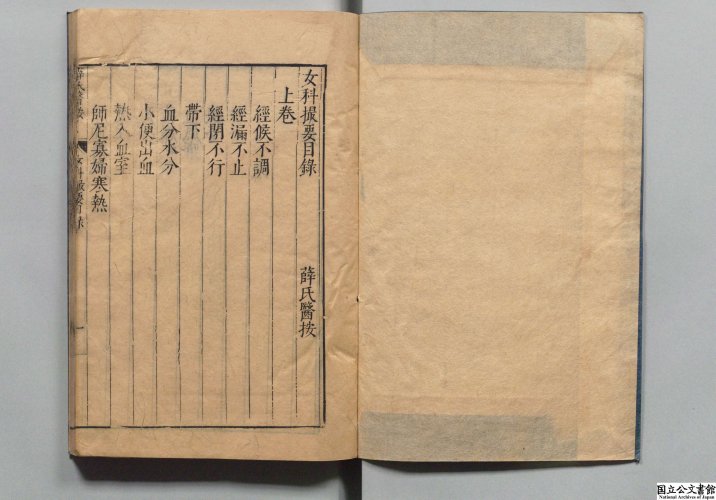 女科撮要目錄 薛氏醫按
上卷
經候不調
經漏不止
經閉不行
帶下
血分水分
小便出血
熱入血室
師尼寡婦寒熱
女科撮要目錄 一
国立公文書館
National Archives of Japan